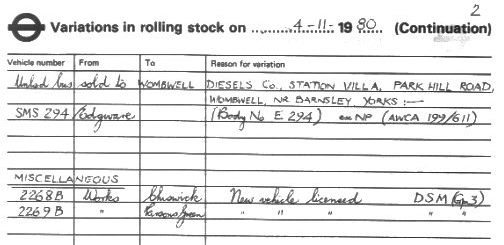 2
Variations in rolling stock on 4-11- 1980 (Continuation)
Vehicle number From To Reason for variation
Unlsd bus sold to WOMBWELL DIESELS Co., STATION VILLA, PARK HILL ROAD,
WOMBWELL, NR BARNSLEY YORKS :—
SMS 294 Edgware (Body No E. 294) ex NP (AWCA 199/611)
MISCELLANEOUS
2268B Works Chiswick New vehicle licensed DSM (Gp3)
2269B " Parsons Green " " " " "